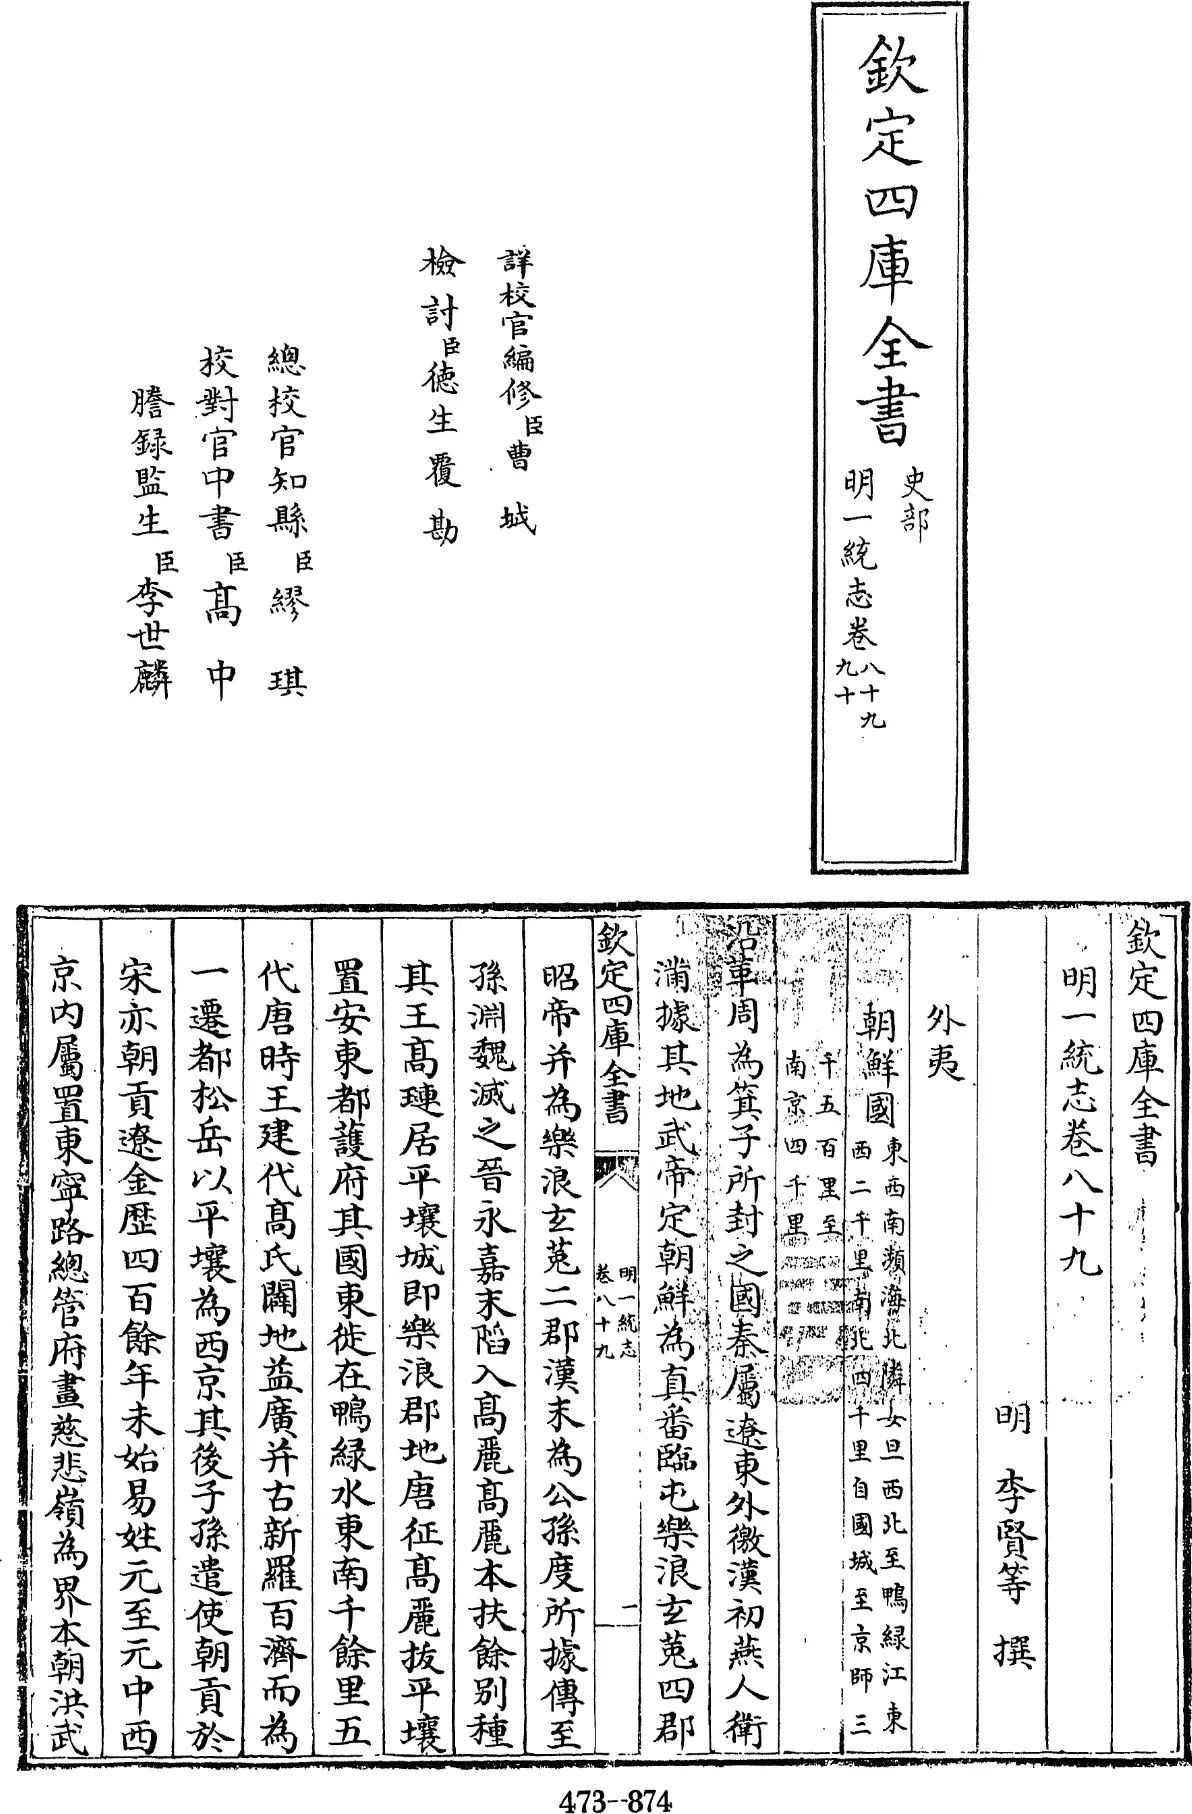 欽定四庫全書
史部
明一統志卷八十九
九十
詳校官編修臣曹城
檢討臣德生覆勘
總校官知縣臣繆琪
校對官中書臣高中
謄録監生臣李世麟
欽定四庫全書
明一統志卷八十九
明 李賢等 撰
外夷
朝鮮國
東西南瀕海北隣女旦西北至鴨緑江東
西二千里南北四千里自國城至京師三
千五百里至
南京四千里
沿革周為箕子所封之國秦屬遼東外徼漢初燕人衛
滿據其地武帝定朝鮮為真番臨屯樂浪玄菟四郡
欽定四庫全書
明一統志
卷八十九
一
昭帝并為樂浪玄菟二郡漢末為公孫度所據傳至
孫淵魏滅之晉永嘉末陷入髙麗髙麗本扶餘别種
其王髙璉居平壤城即樂浪郡地唐征髙麗拔平壤
置安東都護府其國東徙在鴨緑水東南千餘里五
代唐時王建代髙氏闢地益廣并古新羅百濟而為
一遷都松岳以平壤為西京其後子孫遣使朝貢於
宋亦朝貢遼金歴四百餘年未始易姓元至元中西
京内屬置東寧路總管府畫慈悲嶺為界本朝洪武
473--874